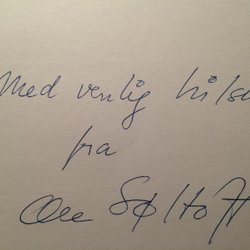 Med venlig hilsen
fra
Ole Søltoft